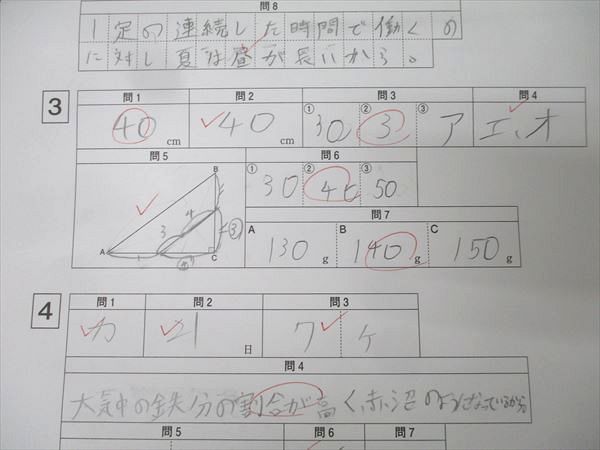 問8
1定の連続した時間で働くの
に対し夏は昼が長いから。
3
問1 問2 問3 問4
40 cm 40 cm ① 30 ② 3 ③ ア エ、オ
問5 問6
B ① 30 ② 40 ③ 50
4
3 ③
問7
A 1 ④ C A 130 g B 140 g C 150 g
4
問1 問2 問3
カ 21 日 ワ ケ
問4
大気中の鉄分の割合が高く、赤沼のようになっているから
問5 問6 問7